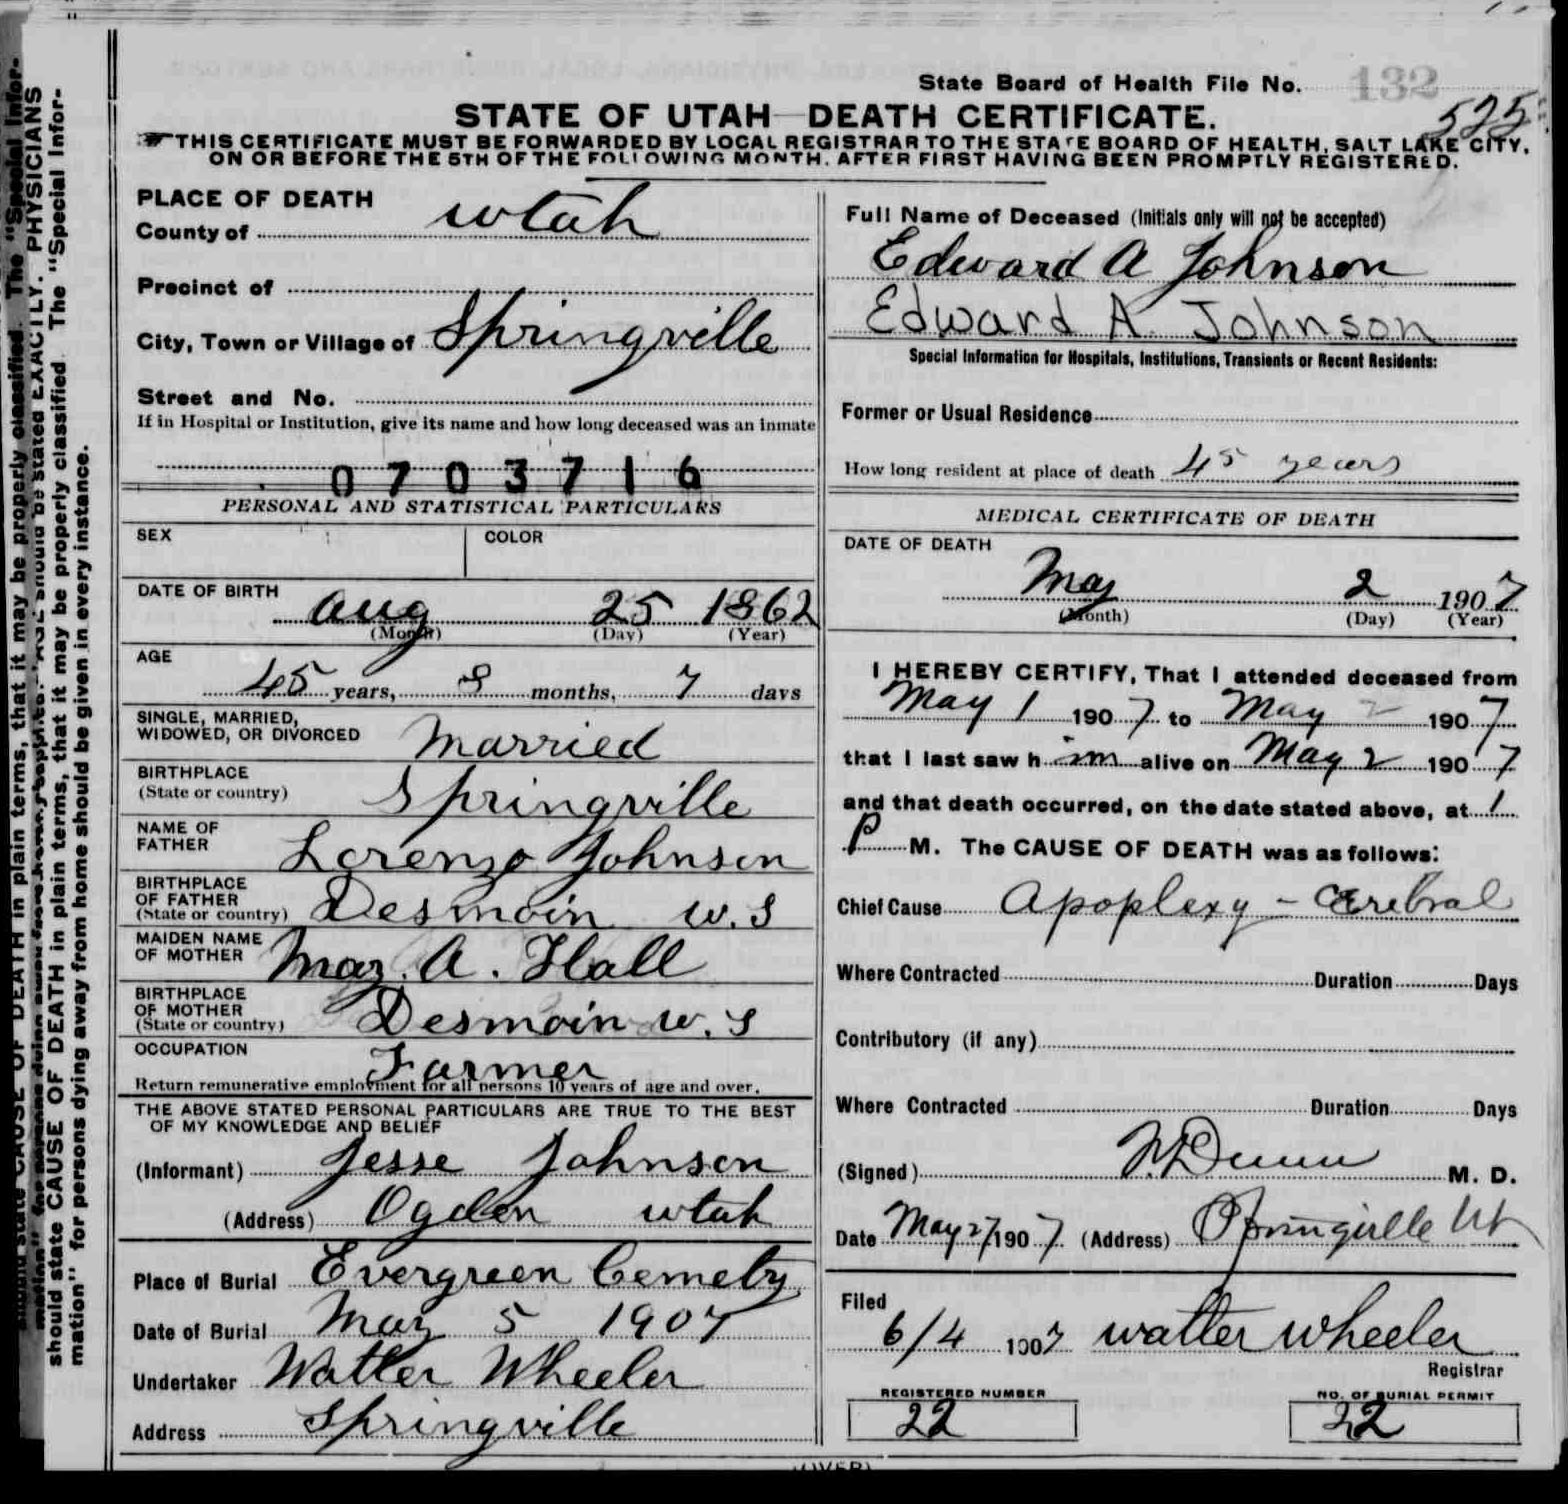 State Board of Health File No. 132
525
STATE OF UTAH—DEATH CERTIFICATE.
THIS CERTIFICATE MUST BE FORWARDED BY LOCAL REGISTRAR TO THE STATE BOARD OF HEALTH, SALT LAKE CITY,
ON OR BEFORE THE 5TH OF THE FOLLOWING MONTH, AFTER FIRST HAVING BEEN PROMPTLY REGISTERED.
PLACE OF DEATH
County of Utah
Precinct of
City, Town or Village of Springville
Street and No.
If in Hospital or Institution, give its name and how long deceased was an inmate
0703716
PERSONAL AND STATISTICAL PARTICULARS
SEX
COLOR
DATE OF BIRTH
Aug 25 1862
(Month) (Day) (Year)
AGE
45 years, 8 months, 7 days
SINGLE, MARRIED,
WIDOWED, OR DIVORCED Married
BIRTHPLACE
(State or country) Springville
NAME OF
FATHER Lorenzo Johnson
BIRTHPLACE
OF FATHER
(State or country) Desmoin W.S
MAIDEN NAME
OF MOTHER May. A. Hall
BIRTHPLACE
OF MOTHER
(State or country) Desmoin W.S
OCCUPATION
Farmer
Return remunerative employment for all persons 10 years of age and over.
THE ABOVE STATED PERSONAL PARTICULARS ARE TRUE TO THE BEST
OF MY KNOWLEDGE AND BELIEF
(Informant) Jesse Johnson
(Address) Ogden Utah
Place of Burial Evergreen Cemety
Date of Burial May 5 1907
Undertaker Walter Wheeler
Address Springville
Full Name of Deceased (Initials only will not be accepted)
Edward A Johnson
Edward A. Johnson
Special Information for Hospitals, Institutions, Transients or Recent Residents:
Former or Usual Residence
How long resident at place of death 45 years
MEDICAL CERTIFICATE OF DEATH
DATE OF DEATH
May 2 1907
(Month) (Day) (Year)
I HEREBY CERTIFY, That I attended deceased from
May 1 1907 to May 2 1907
that I last saw him alive on May 2 1907
and that death occurred, on the date stated above, at 1
P M. The CAUSE OF DEATH was as follows:
Chief Cause Apoplexy - Cerebral
Where Contracted Duration Days
Contributory (if any)
Where Contracted Duration Days
(Signed) Dunn M. D.
Date May 2/1907 (Address) Springville Ut
Filed
6/4 1907 Walter Wheeler
Registrar
REGISTERED NUMBER
22
NO. OF BURIAL PERMIT
22
(OVER)
should state CAUSE OF DEATH in plain terms, that it may be properly classified. The "Special Infor-
mation" for persons dying away from home should be given in every instance.